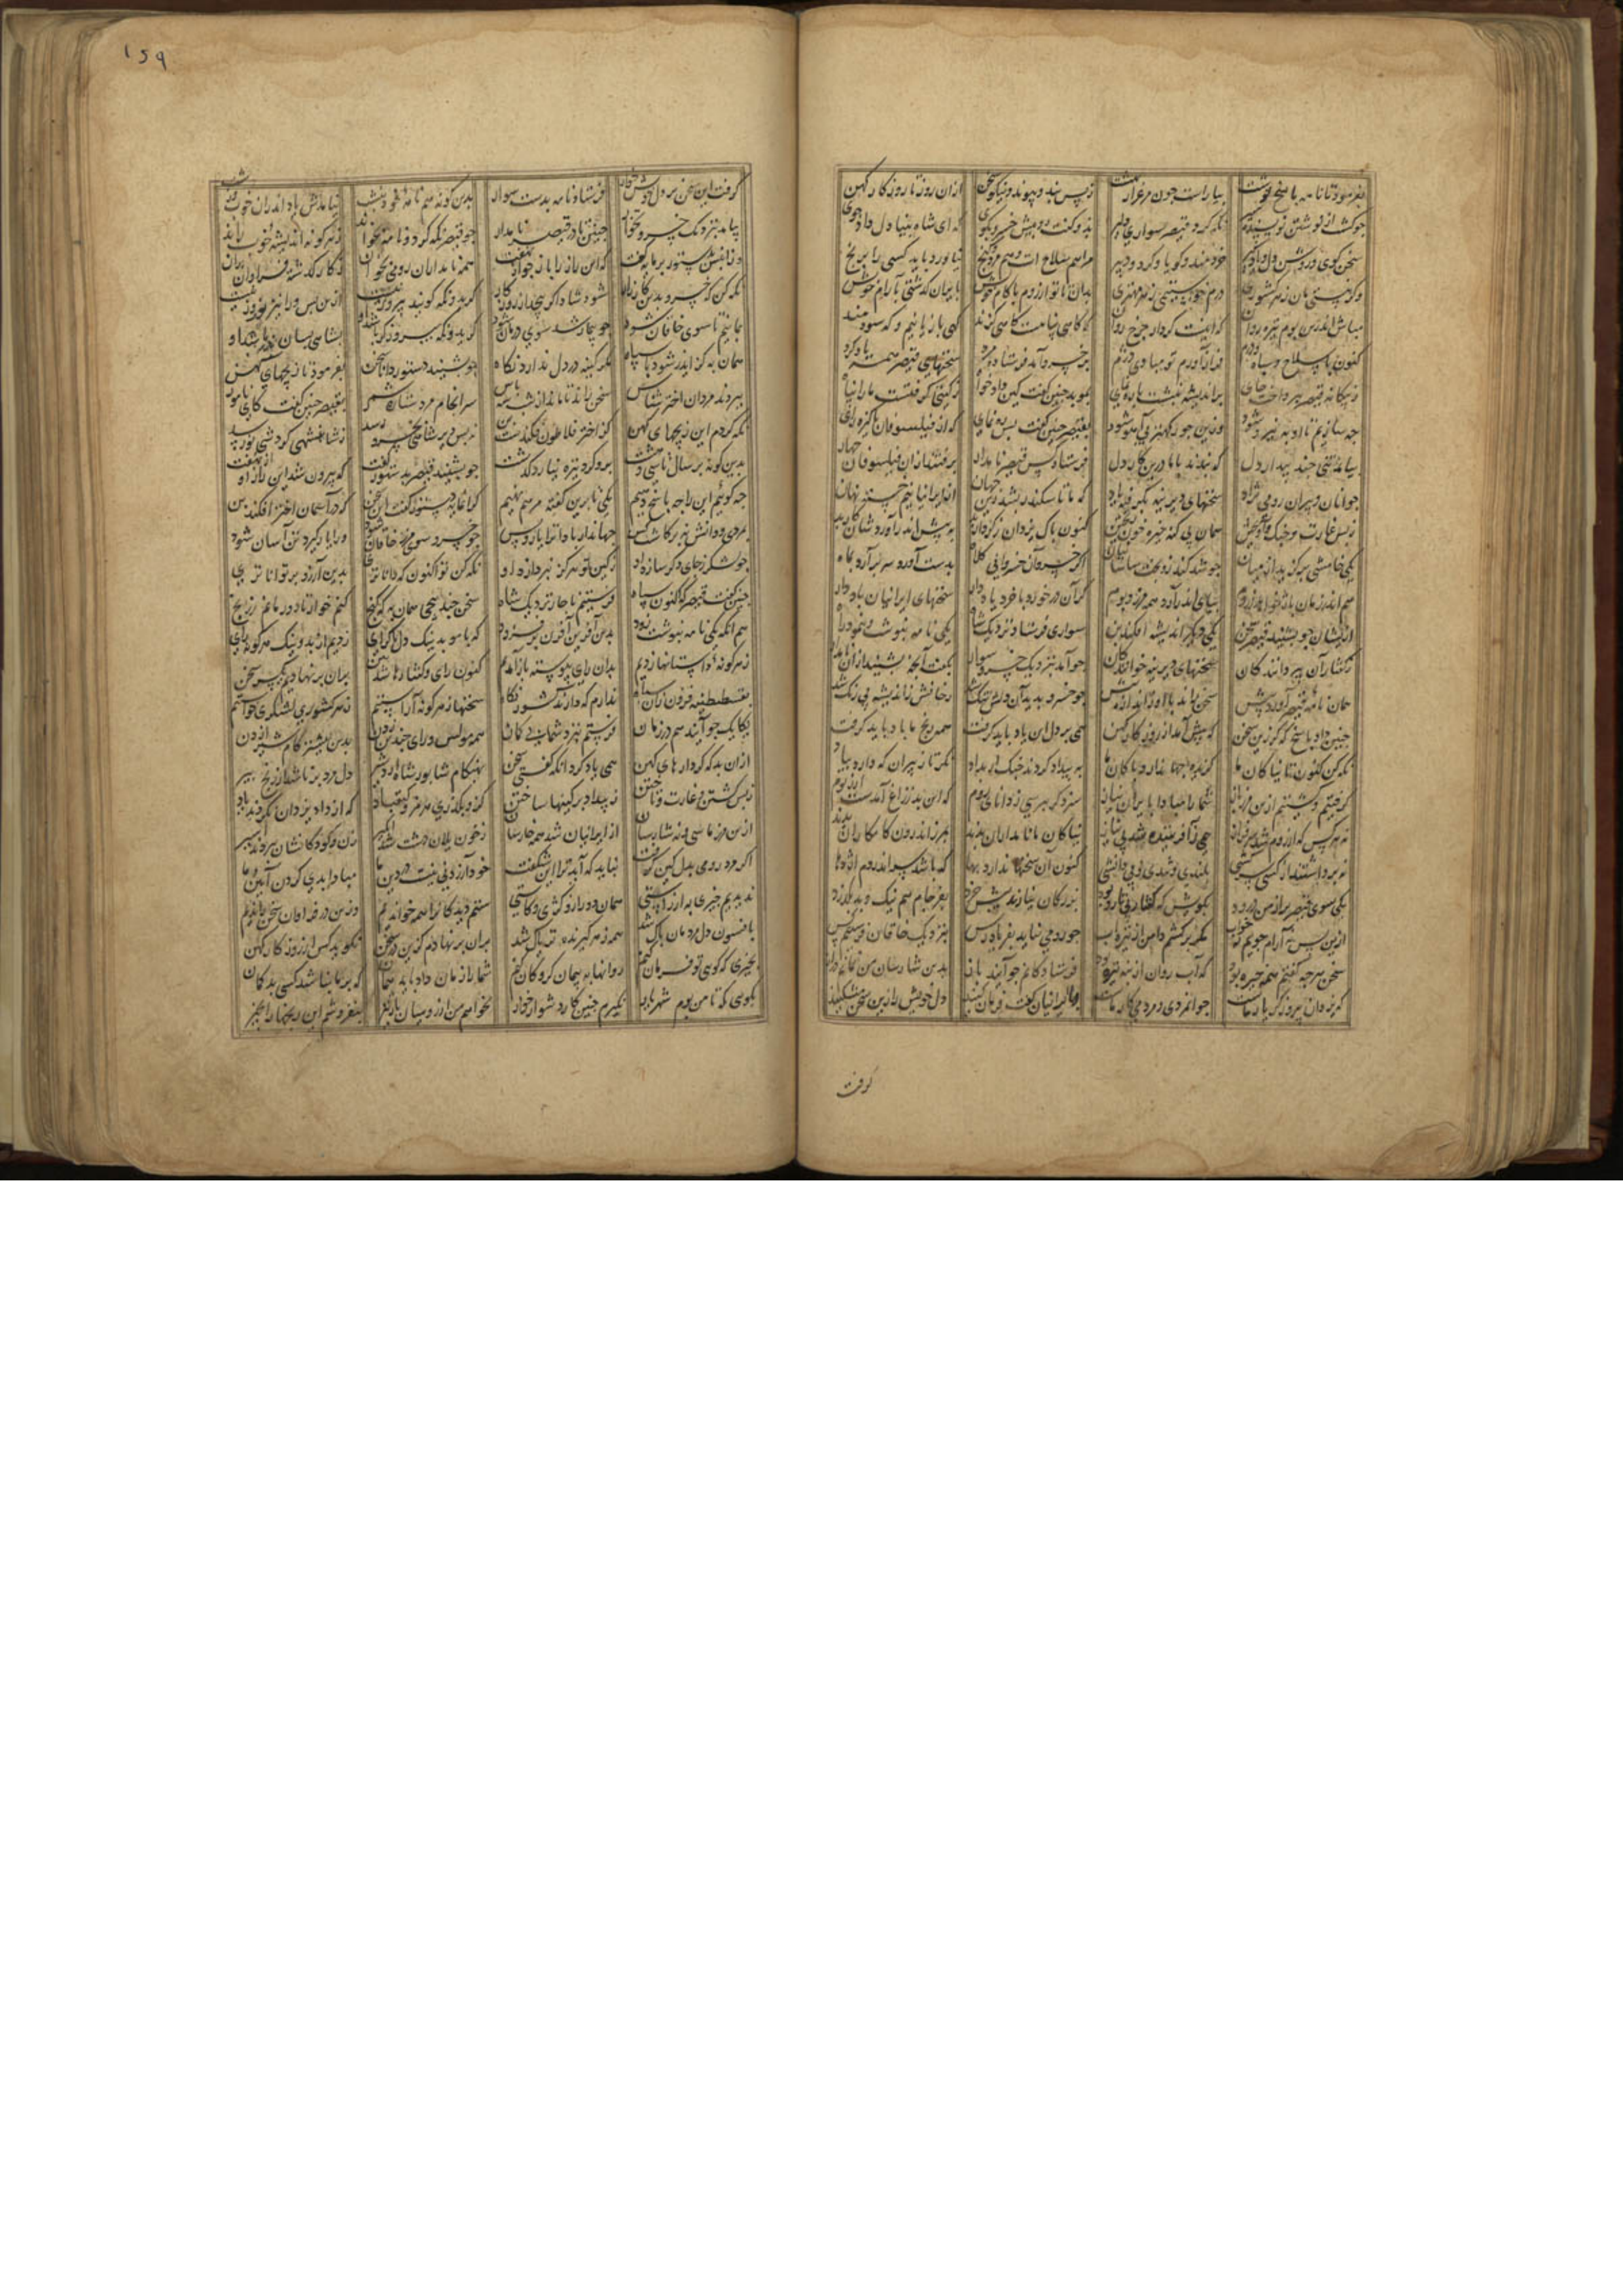 بفرمود تا نامه پاسخ نوشت بیاراست چون مرغزار بهشت ز بس بند و پیوند و نیکو سخن ازان روز تا روزگار کهن
چو گشت از نوشتن نویسنده سیر نگه کرد قیصر سواری دلیر بدو گفت رو پیش خسرو بگوی که ای شاه بینا دل و
سخن گوی و روشن دل و یادگیر خردمند و گویا و گرد و دبیر مرا هم سلاح است و هم زر و گنج نیاورد باید کسی را برنج
وگر نیستی مان ز هر کشوری درم خواستیمی ز هر مهتری بدان تا تو از روم با کام خوش بایران گذشتی بآرام خوش
مباش اندرین بوم تیره روان که اینست کردار چرخ روان که گاهی پناهست گاهی گزند گهی با زیانیم و گه سودمند
کنون با سلاح و سپاه و درم فراز آورم تو مباش دژم بر خسرو آمد فرستاده مرد سخنهای قیصر همه یاد کرد
ز بیگانه قیصر بپرداخت جای پراندیشه بنشست با رهنمای بموبد چنین گفت کین دادخواه ز گیتی گرفتست ما را پناه
چه سازیم تا او به نیرو شود وزین جور کهتر بی آهو شود بقیصر چنین گفت پس رهنمای که از فیلسوفان پاکیزه رای
بیاید تنی چند بیدار دل که بندند با ما درین کار دل فرستاد کس قیصر نامدار برفتند ازان فیلسوفان چهار
جوانان و پیران رومی نژاد سخنهای دیرینه که ما تا سکندر بشد زین جهان از ایرانیانیم خسته نهان
ز بس غارت و جنگ و آویختن همان بی گنه خیره خون ریختن کنون پاک یزدان ز کردار بد به پیش اندر آوردشان کار بد
یکی خامشی برگزین از میان چو شد کند رو بخت ساسانیان اگر خسرو آن خسروانی کلاه بدست آورد سر برآرد بماه
هم اندر زمان باژ خواهد ز روم بپای اندر آرد همه مرز و بوم گر آن درخورد با خرد یاد دار سخنهای ایرانیان باد دار
ازیشان چو بشنید قیصر سخن یکی دیگر اندیشه افکند بن سواری فرستاد نزدیک شاه یکی نامه بنوشت و بنمود راه
ز گفتار آن پیر دانندگان سخنهای دیرینه خوانندگان چو آمد بنزدیک خسرو سوار بگفت آنچه بشنید ازان نامدار
همان نامه قیصر آورد پیش سخن راند با او ز اندازه بیش چو خسرو بدید آن دلش تنگ شد رخانش ز اندیشه بی رنگ شد
چنین داد پاسخ که گر زین سخن که پیش آمد از روزگار کهن همی بر دل این یاد باید گرفت همه رنج ما باد باید گرفت
نگه کن کنون تا نیاکان ما گزیده جهاندار و پاکان ما به بیداد کردند جنگ ار بداد نگر تا ز پیران که دارد بیاد
گرفتیم و گشتیم ازین مرز باز شما را مبادا بایران نیاز سزد گر بپرسی ز دانای روم که این بد ز زاغ آمدست ار ز بوم
نه هر کس که از روم شد سرفراز همی زآفریننده شد بی نیاز نیاکان ما نامداران بدند بهرز اندرون کامکاران بدند
نه برداشتند از کسی سرکشی بلندی و تندی و بی دانشی کنون آن سخنها ندارد بها که باشد سر اندر دم اژدها
یکی سوی قیصر بر از من درود بگویش که گفتار بی تار و پود بزرگان نیازند پیش خرد بفرجام هم نیک و بد بگذرد
ازین پس نه آرام جویم نه خواب مگر برکشم دامن از تیره آب چو رومی نیاید بفریادرس بنزدیک خاقان فرستیم کس
سخن هرچه گفتم همه خیره بود که آب روان از بنه تیره بود فرستادگانم چو آیند باز بدین شارسان من نمانم دراز
که یزدان پیروزگر یار ماست جوانمردی و مردمی کار ماست بایرانیان گفت فرمان کنید دل خویش را زین سخن مشکنید
گرفت
۱۵۹
گرفت این سخن بر دل خویش خوار فرستاد نامه بدست سوار بدین گونه هم نامه
بیامد بنزدیک خسرو چنین تا در قیصر نامدار چو قیصر نگه کرد و نامه بخواند ز هر گونه اندیشه خوب راند
گفت که این راز را باز جوی از نهفت همه نامداران رومی بخوان
نگه کن که خسرو بدین کارزار شود شاد اگر پیچد از روزگار گر ایدونکه گویند پیروز نیست ازین پس ورا نیز نوروز نیست
بمانیم تا سوی خاقان شود چو بیمار شد سوی درمان شود گر ایدونکه پیروزگر باشد او بشاهی بسان پدر باشد او
همان به کز ایدر شود با سپاه مگر کینه در دل ندارد نگاه چو بشنید دستور دانا سخن بفرمود تا زیجهای کهن
ببردند مردان اخترشناس سخن راند تا ماند از شب سه پاس سرانجام مرد ستاره شمر بقیصر چنین گفت کای نامور
نگه کردم این زیجهای کهن کز اختر فلاطون فکندست بن نه بس دیر شاهی بخسرو رسد ز شاهنشهی گردشی نو رسد
بدین گونه بر سال تا سی و هشت بر و گرد تیره نیارد گذشت چو بشنید قیصر بدستور گفت که بیرون شد این راز از نهفت
چه گوئیم این را چه پاسخ دهیم یکی تا برین گفته مرهم نهیم گرانمایه دستور گفت این سخن که در آسمان اختر افکند بن
بمردی و دانش نه برگاشت کس جهاندار بادا ترا یار و بس چو خسرو سوی مرز خاقان شود ورا یار گیرد تن آسان شود
چو لشکر ز جای دگر سازد او ز کین تو هرگز نپردازد او نگه کن تو اکنون که داناتری بدین آرزو بر تواناتری
چنین گفت قیصر که اکنون سپاه فرستیم ناچار نزدیک شاه سخن چند پیچی همان به که گنج کنم خوار تا دور مانم ز رنج
هم آنگه یکی نامه بنوشت زود بدان آفرین آفرین برفزود که با موبد نیک دل پاک رای زدیم از بد و نیک هر گونه رای
ز هر گونه داستانها زدیم بدان رای پیوسته باز آمدیم کنون رای و گفتارها شد ببن بران برنهادیم یکسر سخن
بقسطنطنیه درون زان سپاه ندارم که دارند کشور نگاه سخنها ز هر گونه آراستیم ز هر کشوری لشکری خواستیم
یکایک چو آیند هم در زمان فرستیم نزد شما بی گمان همه مولش و رای چندین زدن بدین نیشتر کام شیر آزدن
ازان بد که کردارهای کهن همی یاد کرد آنکه گفتی سخن که هنگام شاپور شاه اردشیر دل مرد برنا شد از رنج پیر
ز بس کشتن و غارت و تاختن به بیداد بر کینها ساختن کزو بگذری هرمز و کیقباد که از داد یزدان نکردند یاد
ازین مرز ما سی و نه شارسان از ایرانیان شد همه خارسان ز خون یلان دشت شد آبگیر زن و کودکانشان ببردند اسیر
اگر مرد رومی بدل کین گرفت نباید که آید ترا این شگفت خود آزردنی نیست در دین ما مبادا بدی کردن آیین ما
ندیدیم چیزی به از راستی همان دوری از کژی و کاستی ستم دیدگان را همه خواندیم وزین در فراوان سخن راندیم
بافسون دل مردمان پاک شد همه زهر گیرنده تریاک شد بران برنهادم کزین در سخن نگوید کس از روزگار کهن
بچیزی که گوی تو فرمان کنم روانها به پیمان گروگان کنم شما را زبان داد باید همان که بر ما نباشد کسی بدگمان
بگوی که تا من بوم شهریار نگیرم چنین کارها دشوار خوار نخواهم من از رومیان باژ نیز بنفروشم این رنجها را بچیز